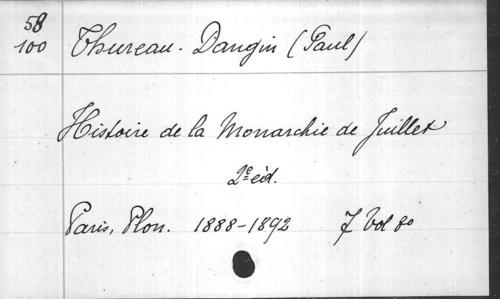 58
100
Thureau-Dangin (Paul)
Histoire de la Monarchie de Juillet
2e éd.
Paris, Plon. 1888-1892 7 Vol 8o